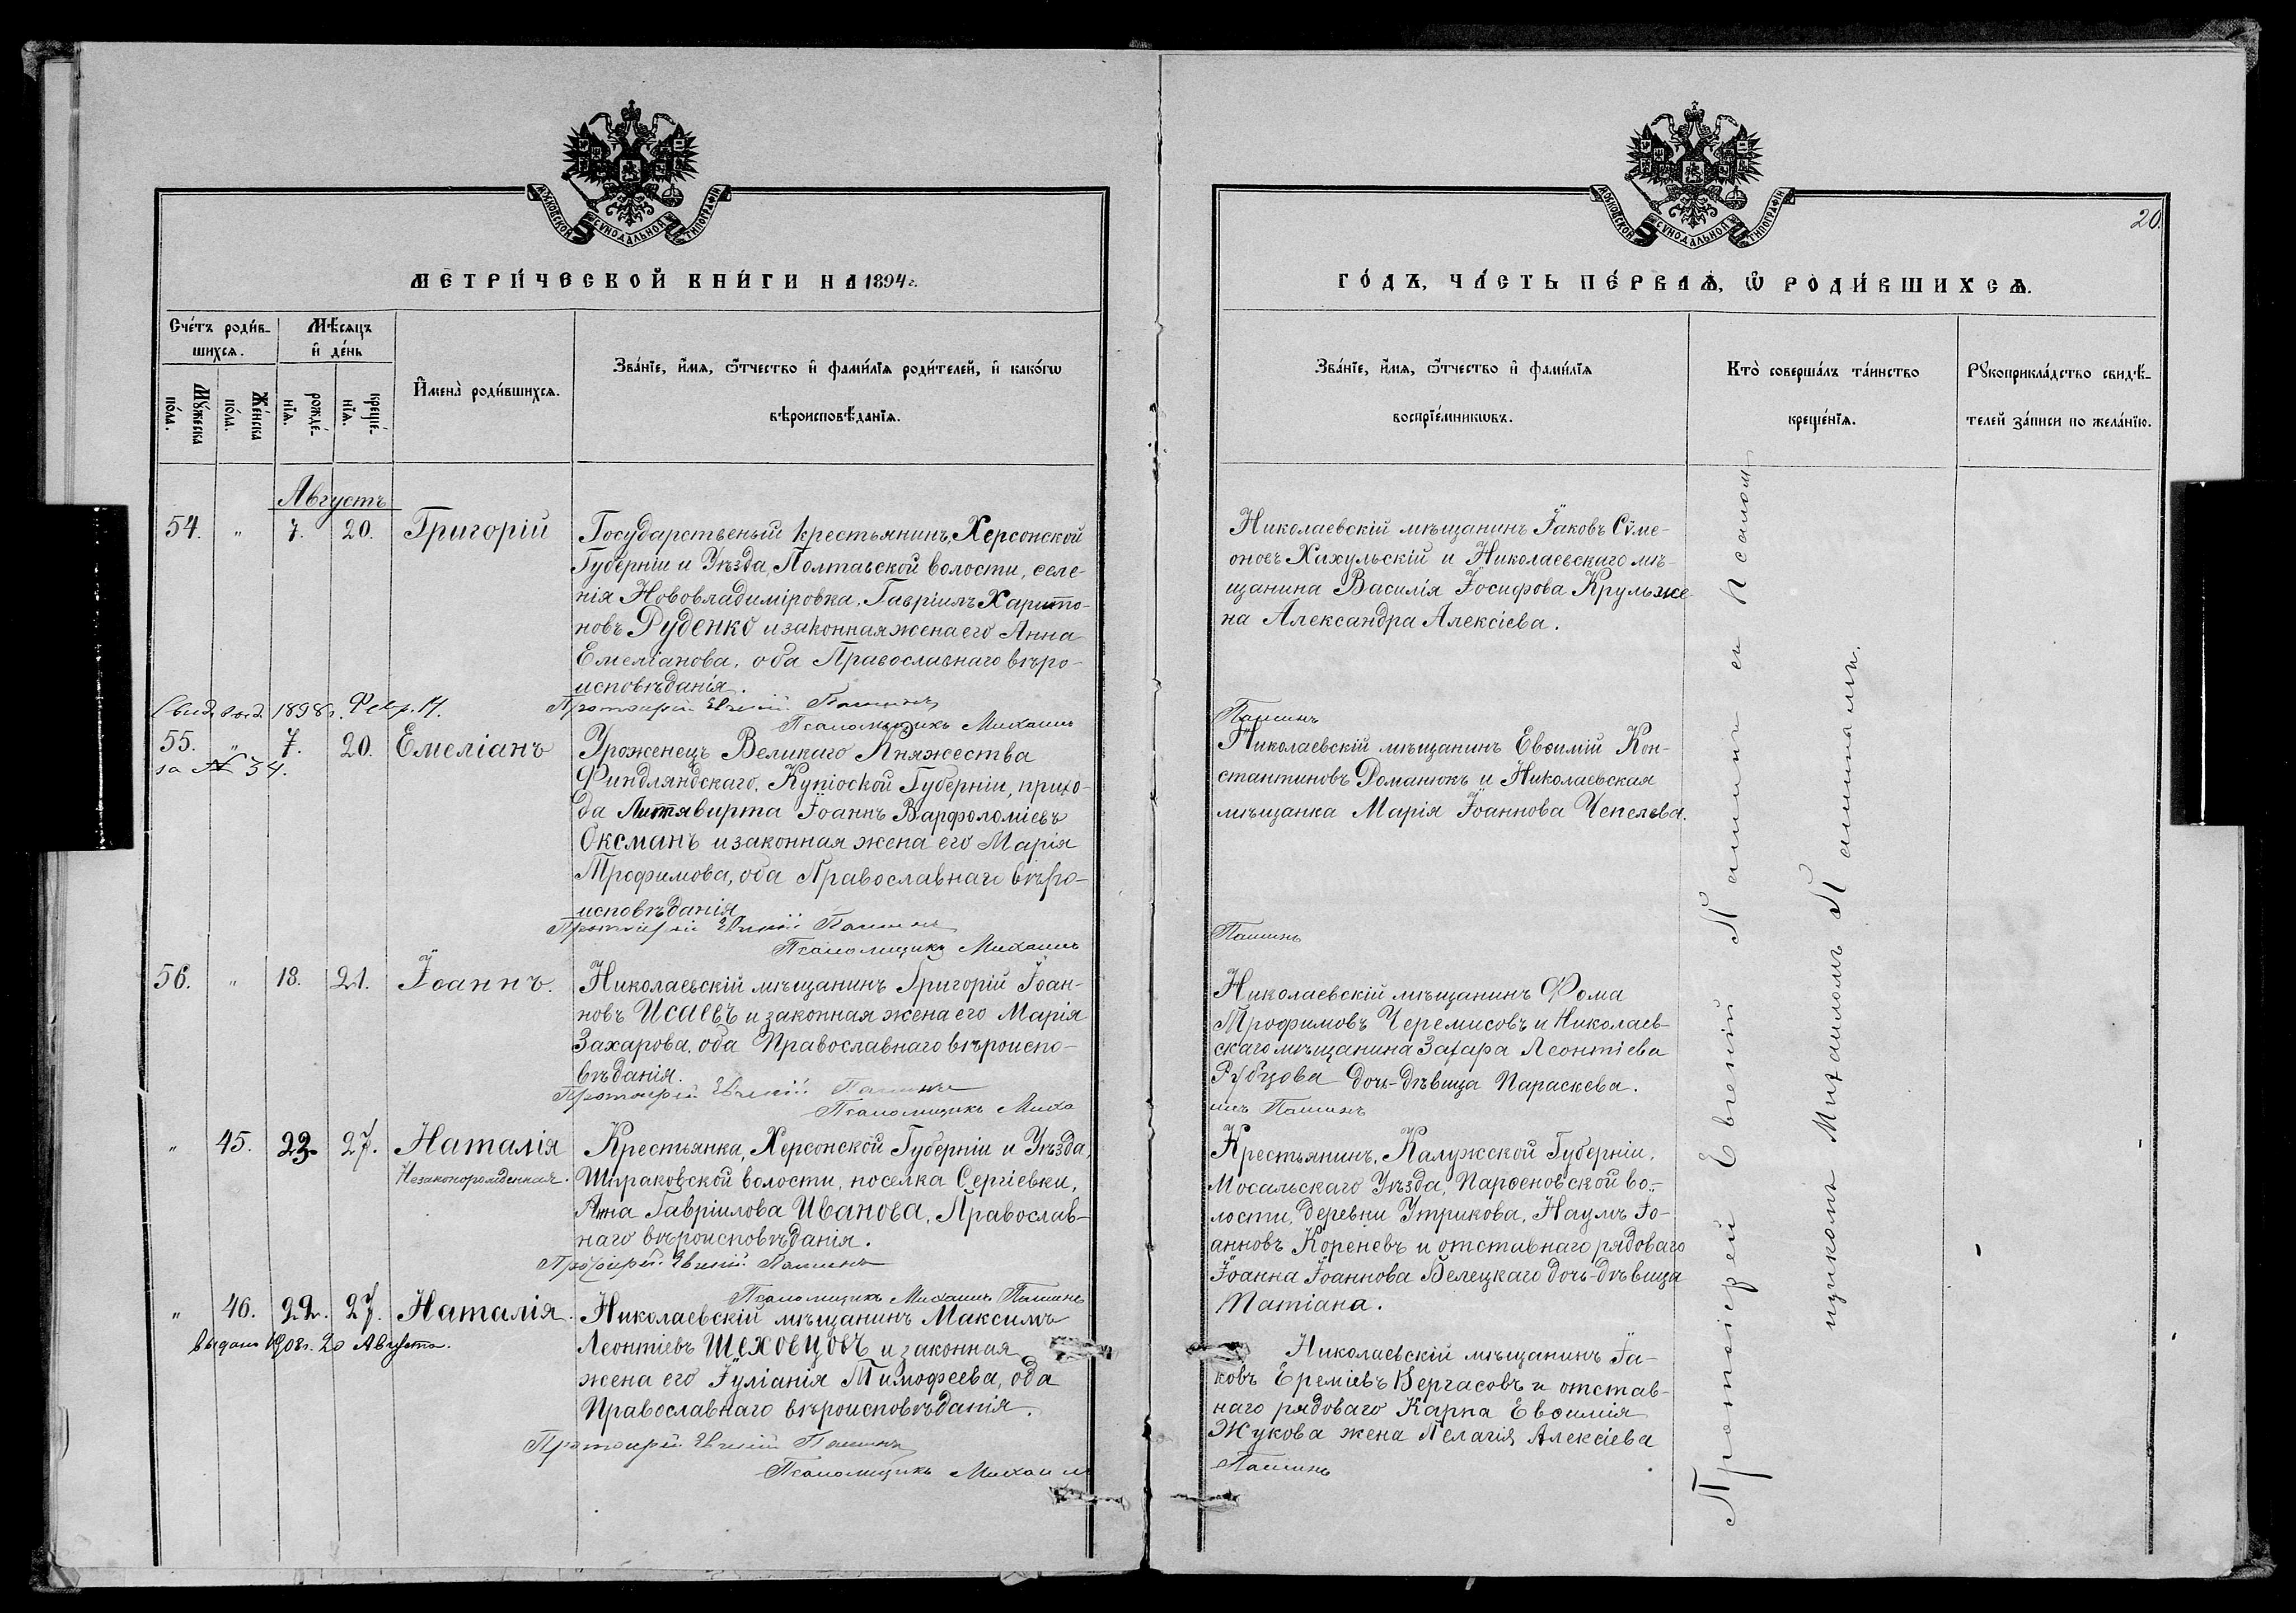 МОСКОВСКОЙ СУНОДАЛЬНОЙ ТИПОГРАФІИ
МЕТРИ́ЧЕСКОЙ КНИ́ГИ НА 1894 г.
Сче́тъ роди́в-
шихсѧ.
Мѣ́сѧцъ
и҆ де́нь
Мꙋ́жеска
по́ла.
Же́нска
по́ла.
рожде́-
нїѧ.
креще́-
нїѧ.
И҆мена̀ роди́вшихсѧ.
Зва́нїе, и҆́мѧ, ѻ҆́тчество и҆ фами́лїѧ роди́телей, и҆ како́гѡ
вѣроисповѣ́данїѧ.
Августъ
54. " 7. 20. Григорій
Государственый крестьянинъ, Херсонской
Губерніи и Уѣзда, Полтавской волости, селе-
нія Нововладиміровка, Гавріилъ Харито-
новъ Руденко и законная жена его Анна
Емеліанова, оба Православнаго вѣро-
исповѣданія.
Протоіерей Евгеній Пашинъ
Псаломщикъ Михаилъ
Свид. выд. 1898 г. Февр. 11.
за № 34.
55. " 7. 20. Емеліанъ
Уроженецъ Великаго Княжества
Финдляндскаго, Купіоской Губерніи, прихо-
да Литявирта Іоаннъ Варфоломіевъ
Оксманъ и законная жена его Марія
Трофимова, оба Православнаго вѣро-
исповѣданія
Протоіерей Евгеній Пашинъ
Псаломщикъ Михаилъ
56. " 18. 21. Іоаннъ.
Николаевскій мѣщанинъ Григорій Іоан-
новъ Исаевъ и законная жена его Марія
Захарова, оба Православнаго вѣроиспо-
вѣданія.
Протоіерей Евгеній Пашинъ
Псаломщикъ Миха
" 45. 23. 27. Наталія
Незаконорожденная.
Крестьянка, Херсонской Губерніи и Уѣзда,
Ширяковской волости, поселка Сергіевки,
Анна Гавріилова Иванова, Православ-
наго вѣроисповѣданія.
Протоіерей Евгеній Пашинъ
Псаломщикъ Михаилъ Пашинъ
" 46. 22. 27. Наталія.
выдано 1908 г. 20 Августа.
Николаевскій мѣщанинъ Максимъ
Леонтіевъ Шеховцовъ и законная
жена его Іуліанія Тимофеева, оба
Православнаго вѣроисповѣданія.
Протоіерей Евгеній Пашинъ
Псаломщикъ Михаилъ
МОСКОВСКОЙ СУНОДАЛЬНОЙ ТИПОГРАФІИ
20.
ГО́ДЪ, ЧА́СТЬ ПЕ́РВАѦ, Ѡ҆ РОДИ́ВШИХСѦ.
Зва́нїе, и҆́мѧ, ѻ҆́тчество и҆ фами́лїѧ
воспрїе́мникѡвъ.
Кто̀ соверша́лъ та́инство
креще́нїѧ.
Рꙋкоприкла́дство свидѣ́-
телей за́писи по жела́нїю.
Николаевскій мѣщанинъ Іаковъ Сѵме-
оновъ Хахульскій и Николаевскаго мѣ-
щанина Василія Іосифова Круль же-
на Александра Алексіева.
Пашинъ
Николаевскій мѣщанинъ Евѳимій Кон-
стантиновъ Романюкъ и Николаевская
мѣщанка Марія Іоаннова Чепелева.
Пашинъ
Николаевскій мѣщанинъ Фома
Трофимовъ Черемисовъ и Николаев-
скаго мѣщанина Захара Леонтіева
Рубцова дочь-дѣвица Параскева.
илъ Пашинъ
Крестьянинъ, Калужской Губерніи,
Мосальскаго Уѣзда, Парѳеновской во-
лости, деревни Утрикова, Наумъ Іо-
анновъ Кореневъ и отставнаго рядоваго
Іоанна Іоаннова Велецкаго дочь-дѣвица
Татіана.
Николаевскій мѣщанинъ Іа-
ковъ Ереміевъ Вергасовъ и отстав-
наго рядоваго Карпа Евѳимія
Жукова жена Пелагія Алексіева
Пашинъ
Протоіерей Евгеній Пашинъ съ Псалом-
щикомъ Михаиломъ Пашинымъ.